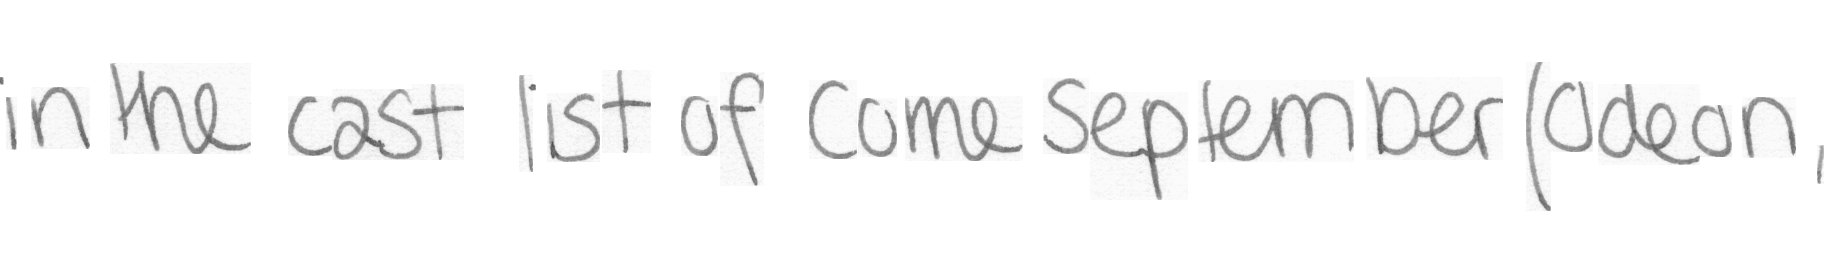 in the cast list of Come September (Odeon,